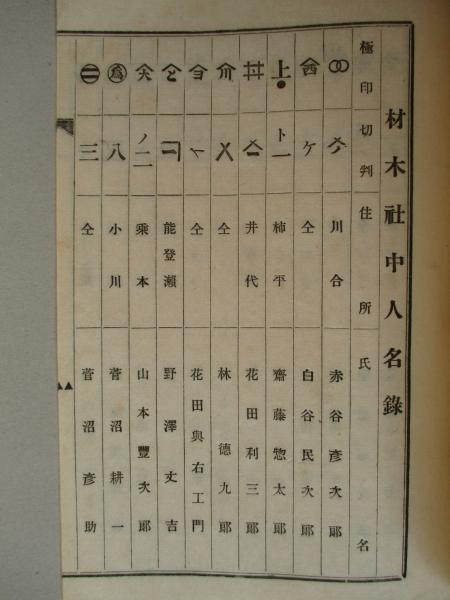 材木社中人名錄
極印 切判 住所 氏名
川合 赤谷彦次郎
ケ 仝 白谷民次郎
上 ト一 柿平 齋藤惣太郎
井代 花田利三郎
仝 林德九郎
仝 花田與右工門
能登瀬 野澤丈吉
ノ二 乘本 山本豐次郎
爲 八 小川 菅沼耕一
三 仝 菅沼彦助